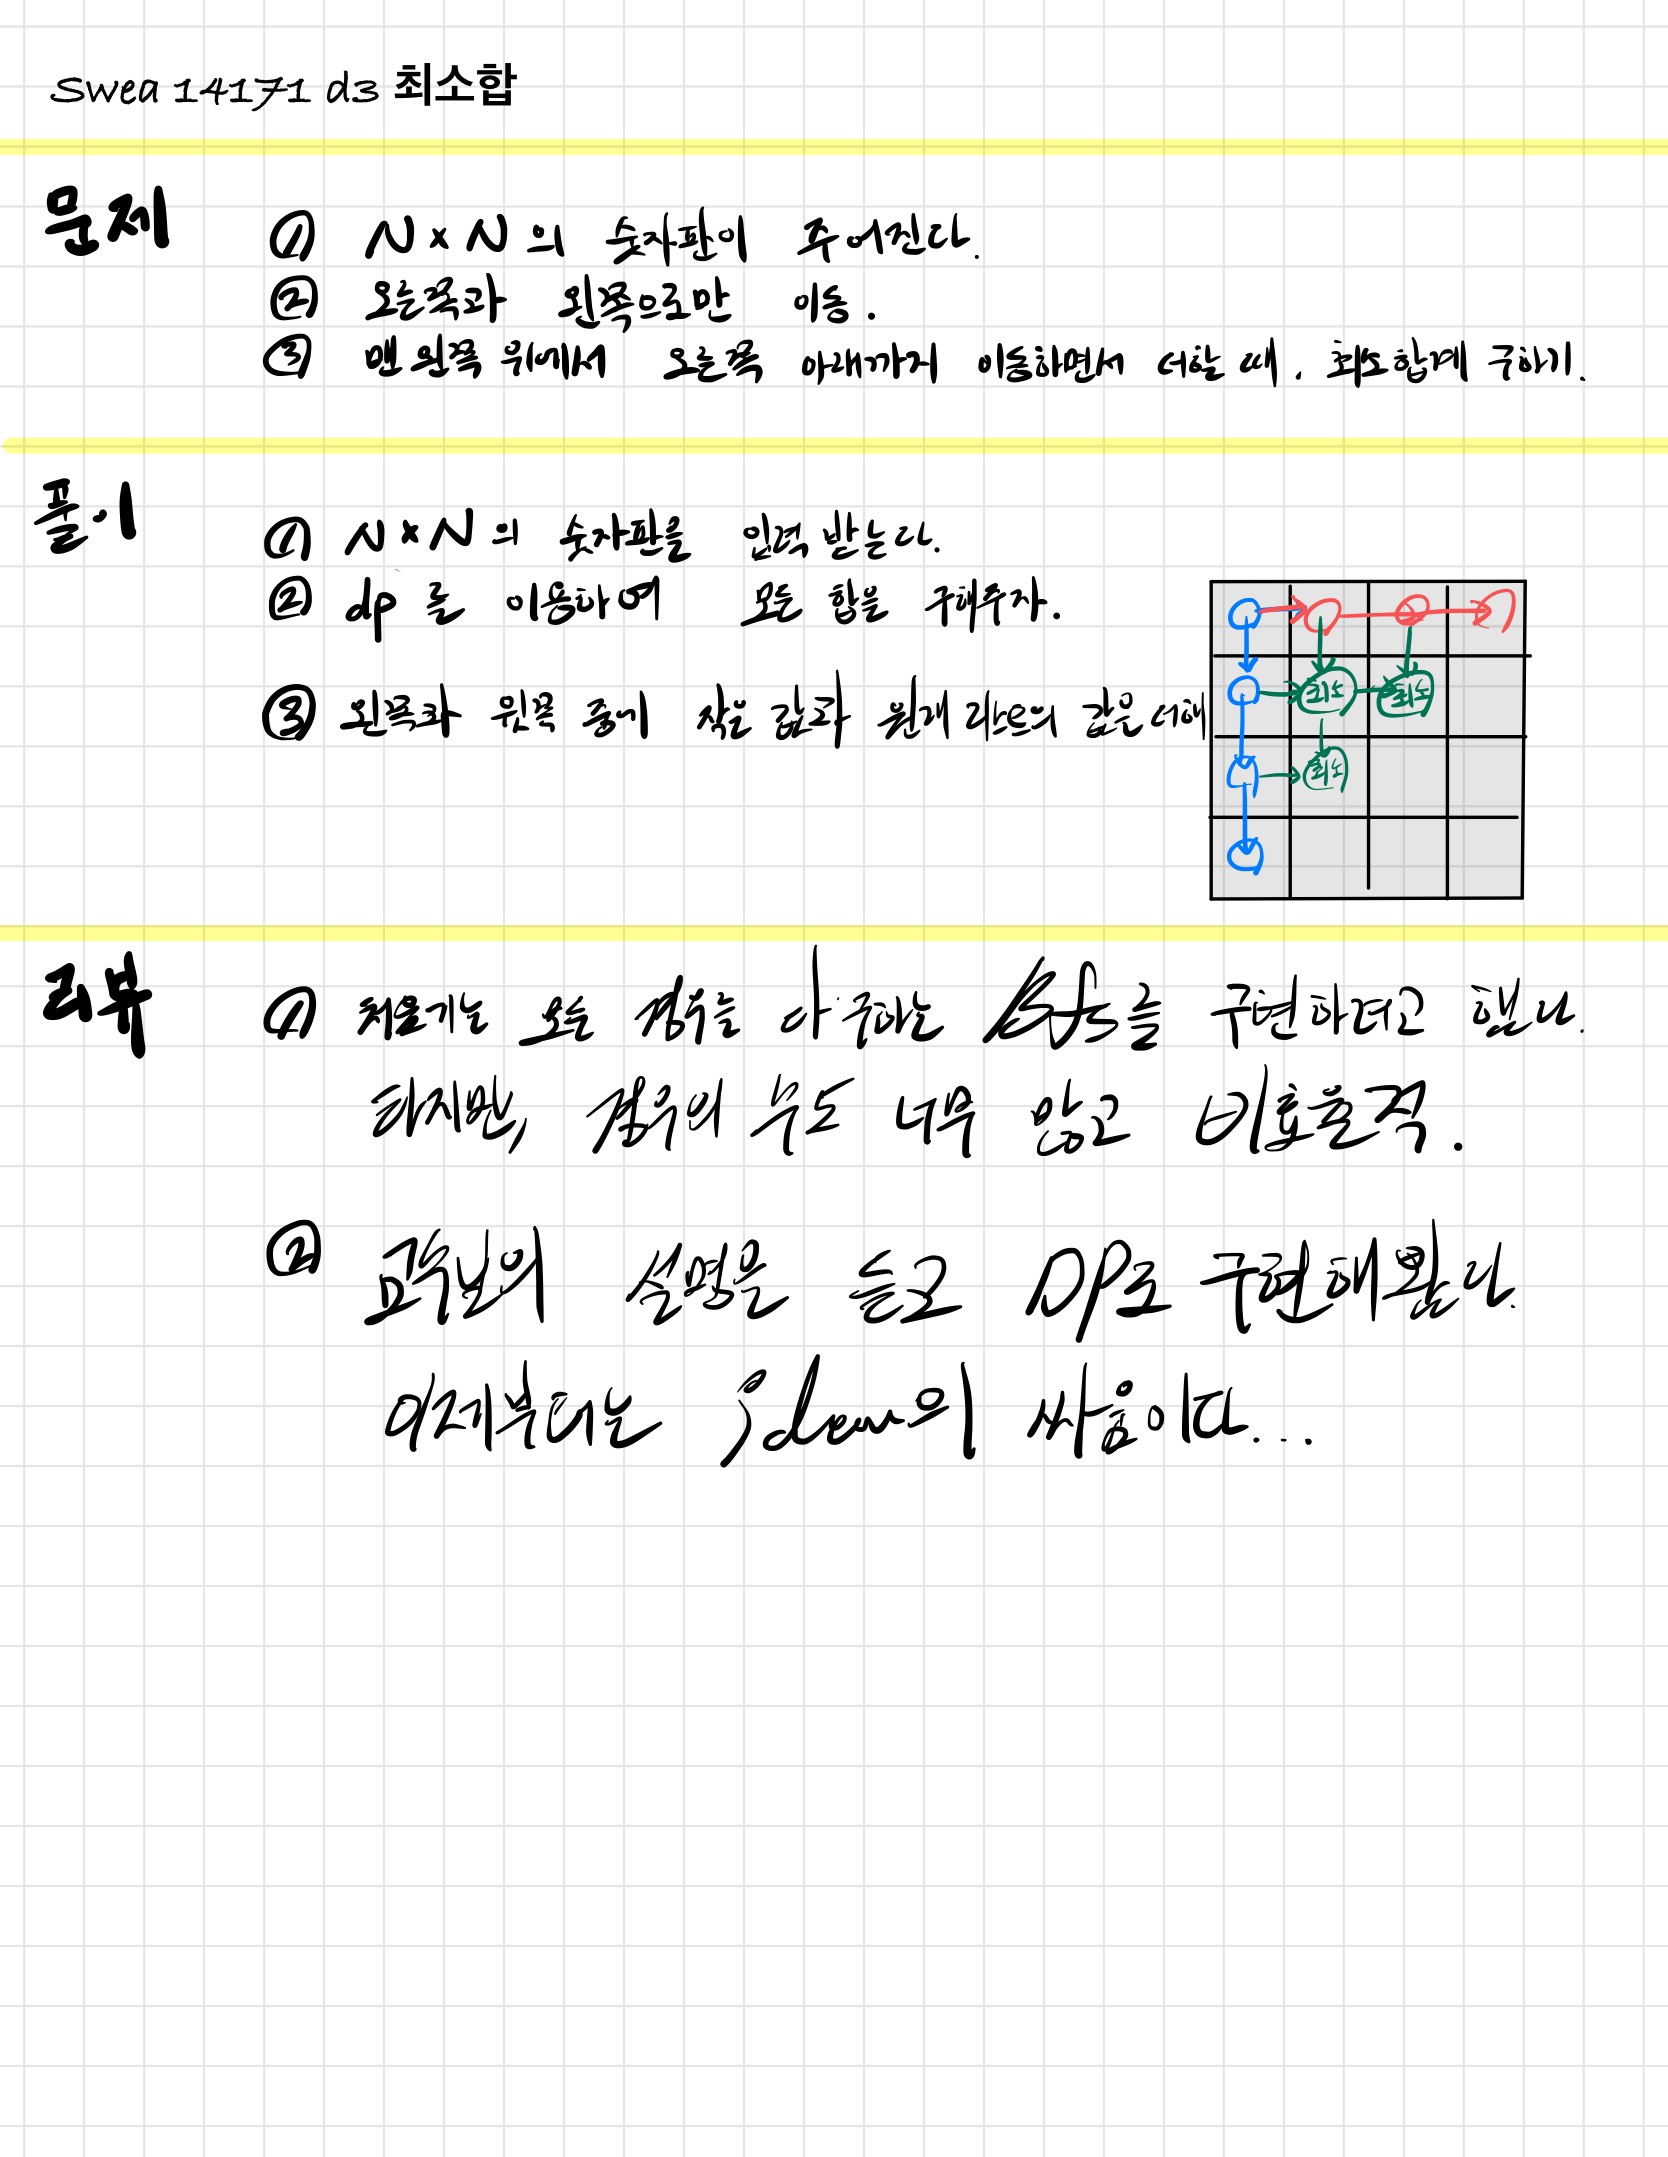 Swea 14171 d3 최소합
문제
① N×N의 숫자판이 주어진다.
② 오른쪽과 왼쪽으로만 이동.
③ 맨 왼쪽 위에서 오른쪽 아래까지 이동하면서 더할 때. 최소합계 구하기.
풀이
① N×N의 숫자판을 입력 받는다.
② dp를 이용하여 모든 합을 구해주자.
③ 왼쪽과 윗쪽 중에 작은 값과 원래 리스트의 값을 더해
최소 최소
최소
리뷰
① 처음기는 모든 경우를 다 구하는 Bfs를 구현하려고 했다.
하지만, 경우의 수도 너무 많고 비효율적.
② 교수님의 설명을 듣고 DP로 구현해봤다.
이제부터는 idea의 싸움이다...